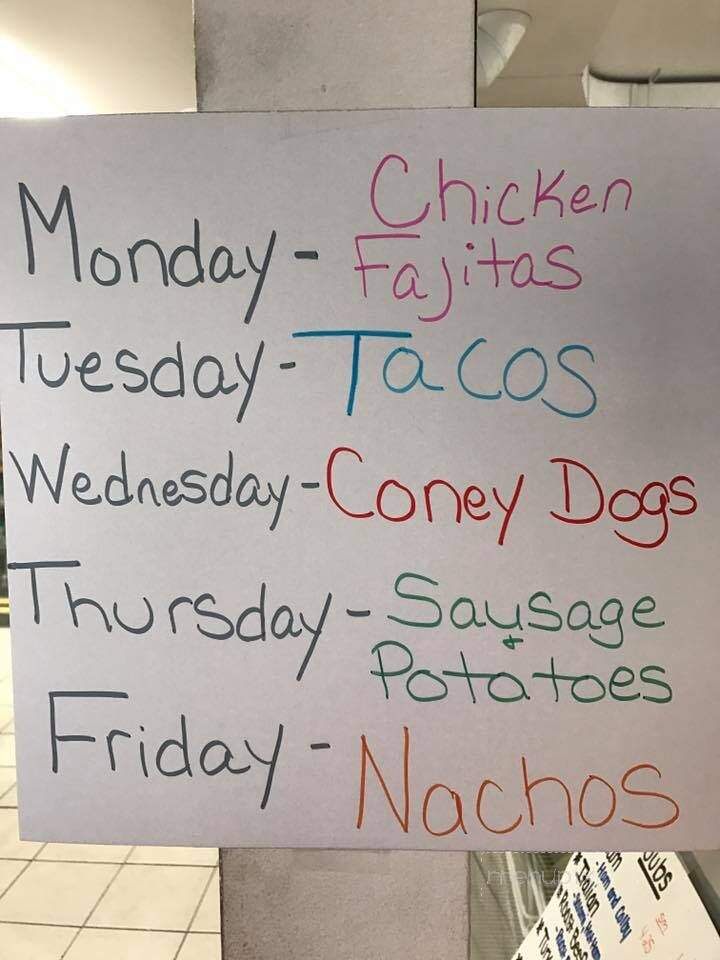 Monday - Chicken
Fajitas
Tuesday - Tacos
Wednesday - Coney Dogs
Thursday - Sausage
&
Potatoes
Friday - Nachos
Subs
Ham and
Italian